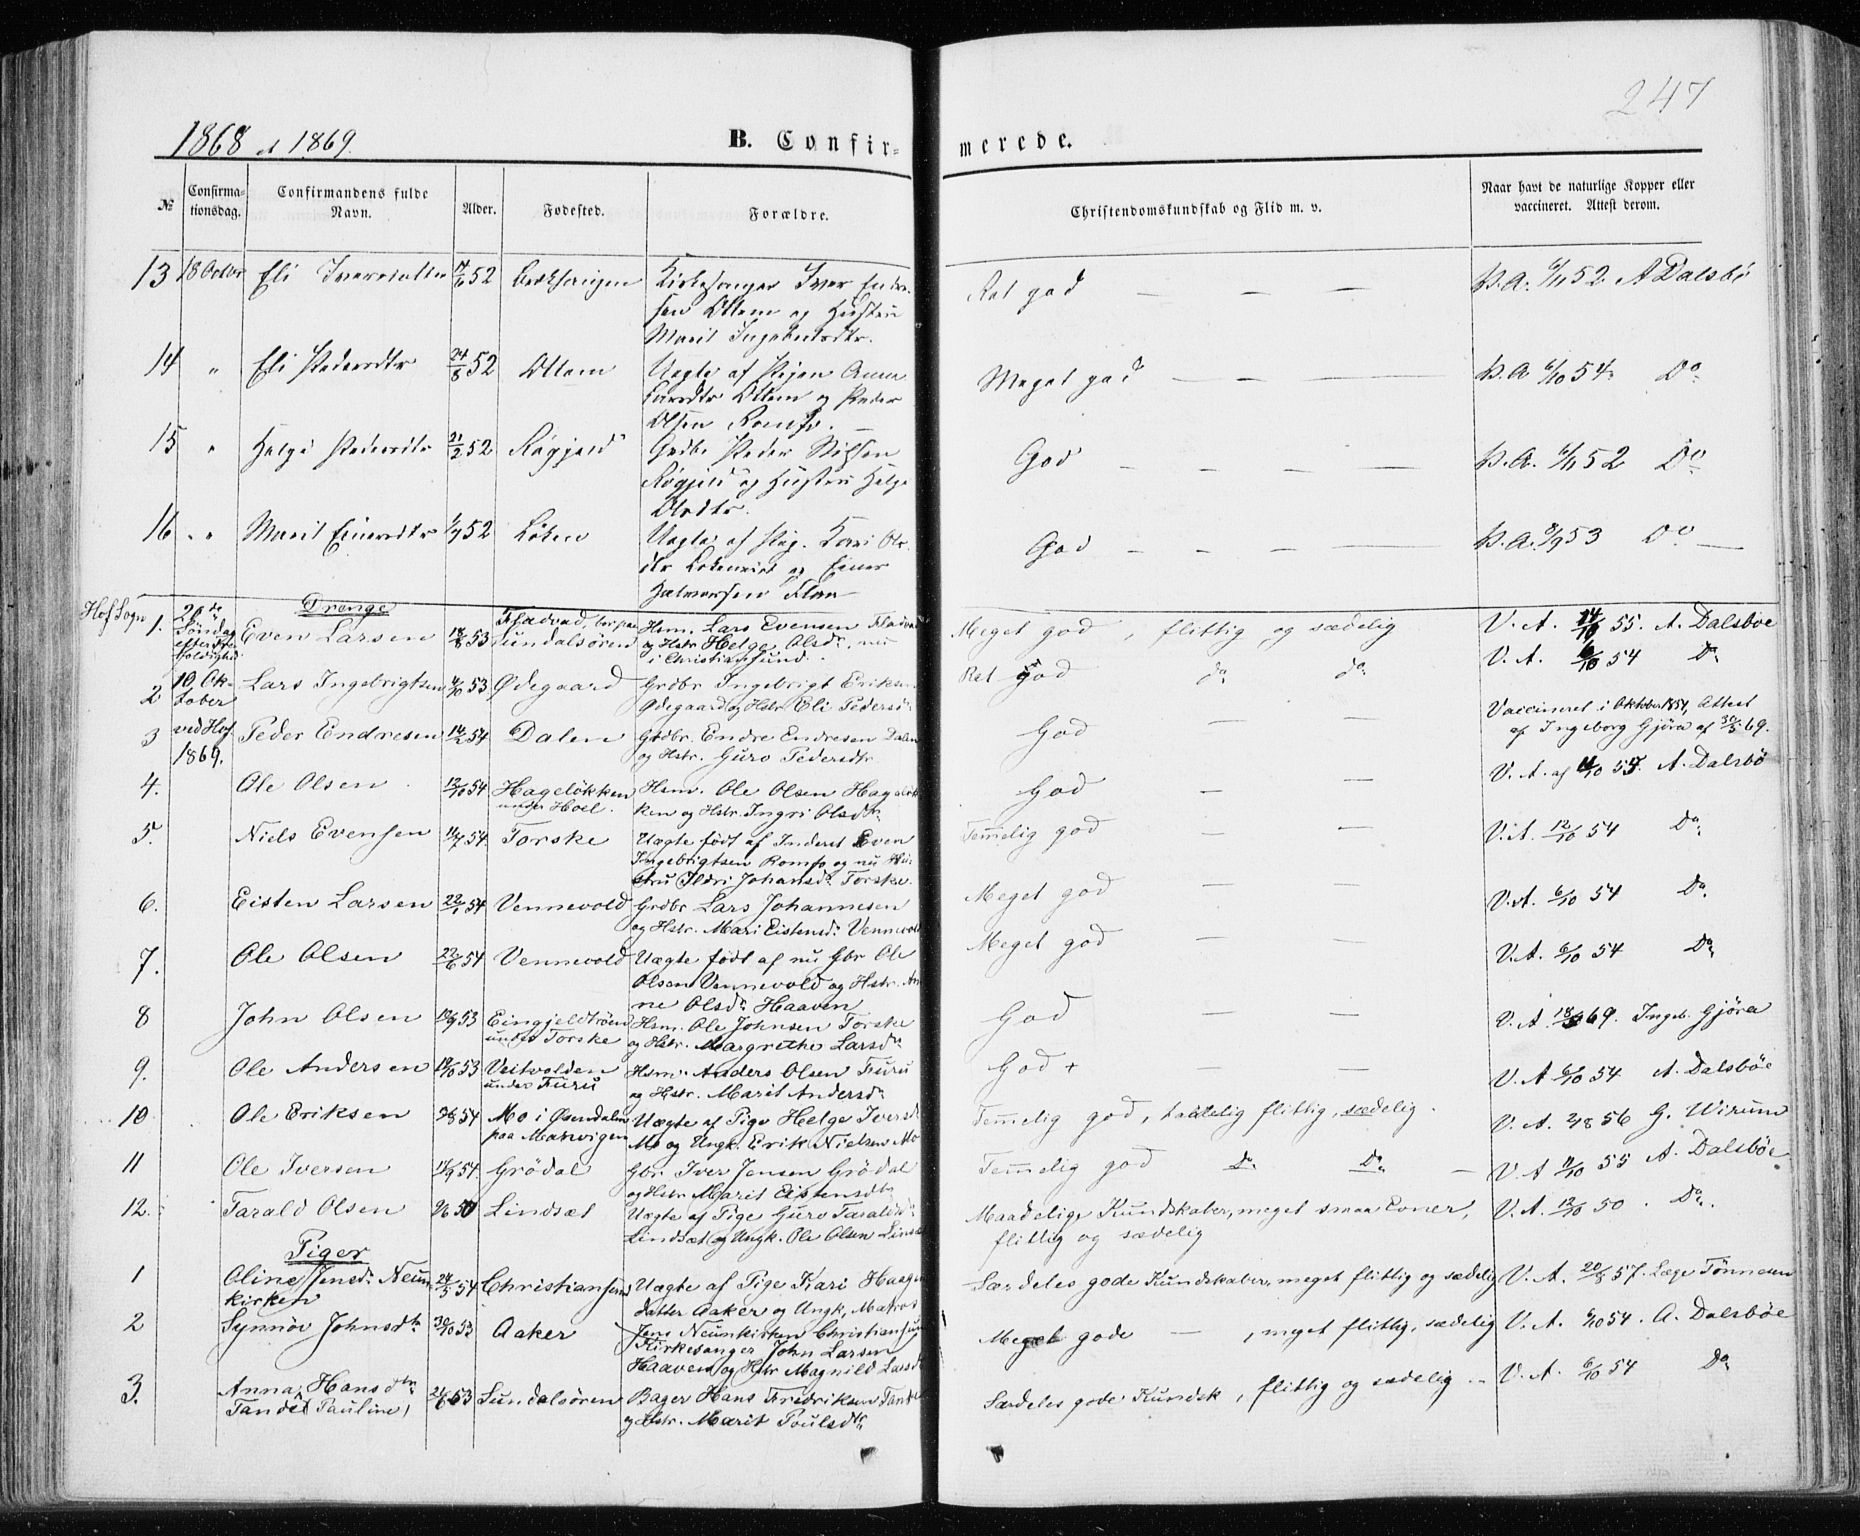 247
1868 et 1869.
B. Confir-
merede.
№
Confirma-
tionsdag.
Confirmandens fulde
Navn.
Alder.
Fødested.
Forældre.
Christendomskundskab og Flid m. v.
Naar havt de naturlige Kopper eller
vaccineret. Attest derom.
13 18 Octbr Eli 17/6 52 Kirkesanger Iver
Ottem og Hustru
Marit
Ret god — — — V.A. 6/11 52. A Dalsbö
14 " Eli Pedersdtr 24/8 52 Ottem Uægte af Pigen Anne
Ottem og Peder
Olsen Romfo. —
Meget god — — — V.A 6/10 54. Do
15 " Helge Pedersdtr 21/2 52 Røgjeld Grdbr Peder Nilsen
Røgjeld og Hustru Helge
Olsdtr.
God — — — V.A. 6/11 52 Do
16 " " Marit Einersdtr 1/7 52 Løken Uægte af Pig. Kari Ols-
dtr og Einer
Halvorsen Flaa
God — — — V.A. 8/9 53 Do —
Hof Sogn
Drenge
1. 20de Søndag efter Trefoldighed Even Larsen 18/8 53 Fladvad, paa
Sundalsören
Hsm. Lars Evensen Fladvad
og Hstr Helge Olsdr, nu
i Christiansund.
Meget god, flittig og sædelig V. A. 14/10 55. A. Dalsboe
2 10 Ok-
tober Lars Ingebrigtsen 4/10 53 Ödegaard Grdbr Ingebrigt Eriksen
Ödegaard og Hstr Eli Pedersdr
Ret god do do V. A. 6/10 54 Do
3 ved Hof
1869. Peder Endresen 14/2 54 Dalen Grdbr. Endre Endresen Dalen
og Hstr. Guro Pedersdtr.
God — — Vaccineret i Oktober 1854, Attest
af Ingeborg Gjöra af 30/5 69.
4. Ole Olsen 12/10 54 Hagelökken
under Hoel.
Hsm. Ole Olsen Hagelök-
ken og Hstr. Ingri Olsdr.
God — — V. A. af 11/10 55. A. Dalsbö
5. Niels Evensen 11/7 54 Torske Uægte födt af Inderst Even
Ingebrigtsen Romfo og nu Hu-
stru Ildri Johansdr Torske.
Temelig god — — V.A. 12/10 54 Do
6. Eisten Larsen 22/1 54 Vennevold Grdbr Lars Johannesen
og Hstr. Mari Eistensdr Vennevold
Meget god — — V.A. 6/10 54 Do
7. Ole Olsen 22/6 54 Vennevold Uægte födt af nu Gbr Ole
Olsen Vennevold og Hstr. An-
ne Olsdr Haaven
Meget god — — V.A. 6/10 54 Do
8 John Olsen 19/9 53 Eingjeldtröen
under Torske
Hsm. Ole Johnsen Torske
og Hstr. Margrethe Larsdr
God — — V. A 18/5 69. Ingeb. Gjöra
9. Ole Andersen 18/10 53 Veitvolden
under Furu
Hsm. Anders Olsen Furu
og Hstr. Marit Andersdr
God + — — V. A 6/10 54 A. Dalsböe
10 Ole Eriksen 28/8 54 Mo i Öxendalen
paa
Uægte af Pige Helge Iversd
Mo og Ungk. Erik Nielsen Mo
Temelig god, taalelig flittig, sædelig. V. A. 2/8 56 G. Wirum
11 Ole Iversen 14/9 54. Grödal Gbr. Iver Jensen Grödal
og Hstr Marit Eistensdtr
Temelig god Do Do — V. A 11/10 55 A. Dalsböe
12. Tarald Olsen 2/6 50 Lindsæt Uægte af Pige Guro Taraldsd
Lindsæt og Ungk. Ole Olsen Lindsæt
Maadelige Kundskaber, meget smaa Evner,
flittig og sædelig
V. A. 12/10 50. Do.
Piger
1 Oline Jensdr Neum-
kirken 24/5 54 Christiansund Uægte af Pige Kari Haagen-
datter Aaker og Ungk, Matros
Jens Neumkirken Christiansund
Særdeles gode Kundskaber, meget flittig og sædelig V. A. 20/8 57. Læge Tönnesen
2 Synnöv Johnsdtr 30/10 53 Aaker Kirkesanger John Larsen
Haaven og Hstr Magnild Larsd
Meget gode — , meget flittig, sædelig V. A. 6/10 54. A. Dalsböe
3. Anna Hansdtr
Tande (Pauline) 24/6 53 Sundalsören Bager Hans Fredriksen Tande
og Hstr. Marit Poulsdtr
Særdeles gode Kundsk, flittig og sædelig. — V. A. 6/10 54 Do